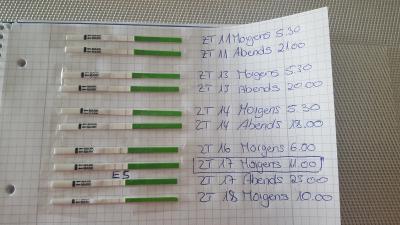 ZT 11 Morgens 5.30
ZT 11 Abends 21.00
ZT 13 Morgens 5.30
ZT 13 Abends 20.00
ZT 14 Morgens 5.30
ZT 14 Abends 18.00
ZT 16 Morgens 6.00
ZT 17 Morgens 11.00
ES
ZT 17 Abends 23.00
ZT 18 Morgens 10.00